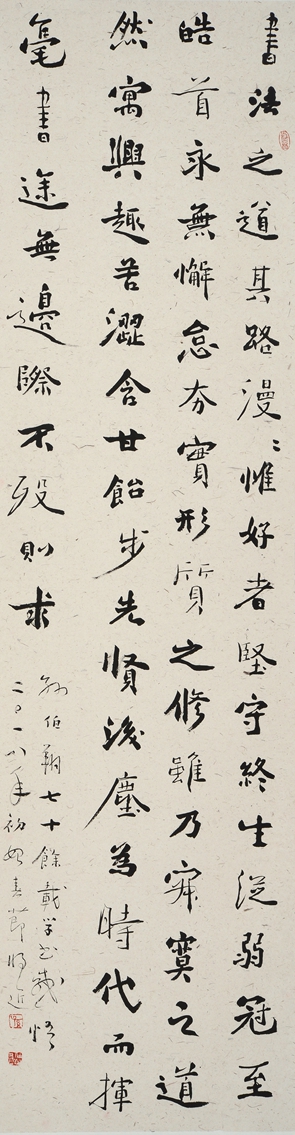 書法之道其路漫〻惟好者堅守終生從弱冠至
皓首永無懈怠夯實形質之修雖乃寂寞之道
然寓興趣苦澀含甘飴步先賢後塵為時代而揮
毫書途無邊際不歿則求
孫伯翔七十餘載學書感悟
二〇一八年初始春節將近